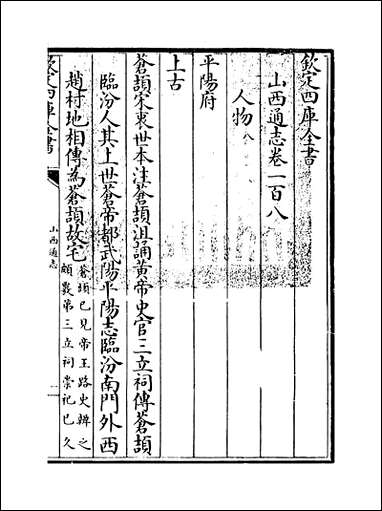 欽定四庫全書
山西通志卷一百八
人物八
平陽府
上古
蒼頡宋衷世本注蒼頡沮誦黃帝史官三立祠傳蒼頡
臨汾人其上世蒼帝都武陽平陽志臨汾南門外西
趙村地相傳為蒼頡故宅蒼頡已見帝王路史辨之
頗覈第三立祠崇祀已久
欽定四庫全書
山西通志
一